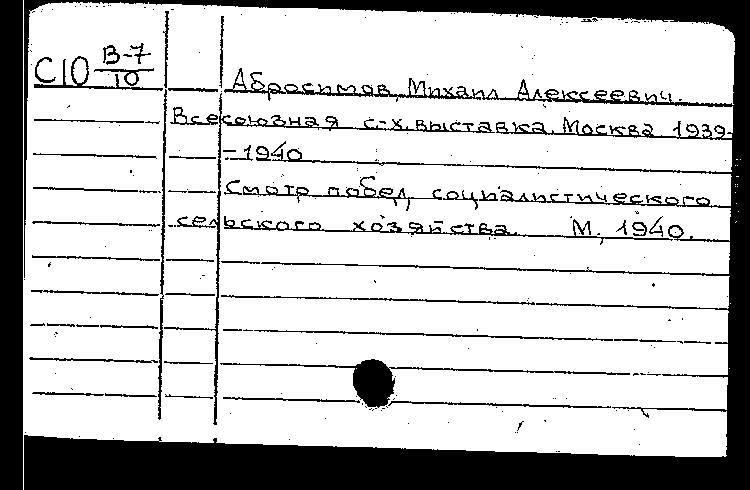 С10 В-7/10
Абросимов, Михаил Алексеевич.
Всесоюзная с-х. выставка. Москва 1939-
-1940
Смотр побед социалистического
сельского хозяйства. М., 1940.